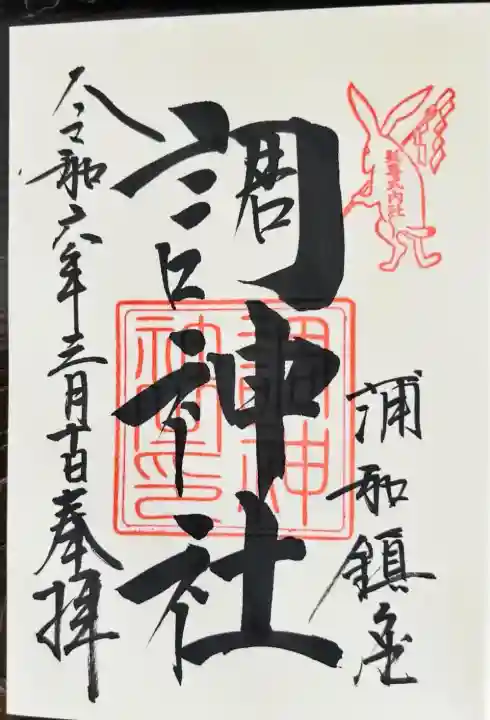 延喜式内社
浦和鎮座
調神社
調神社印
令和六年三月十日奉拝